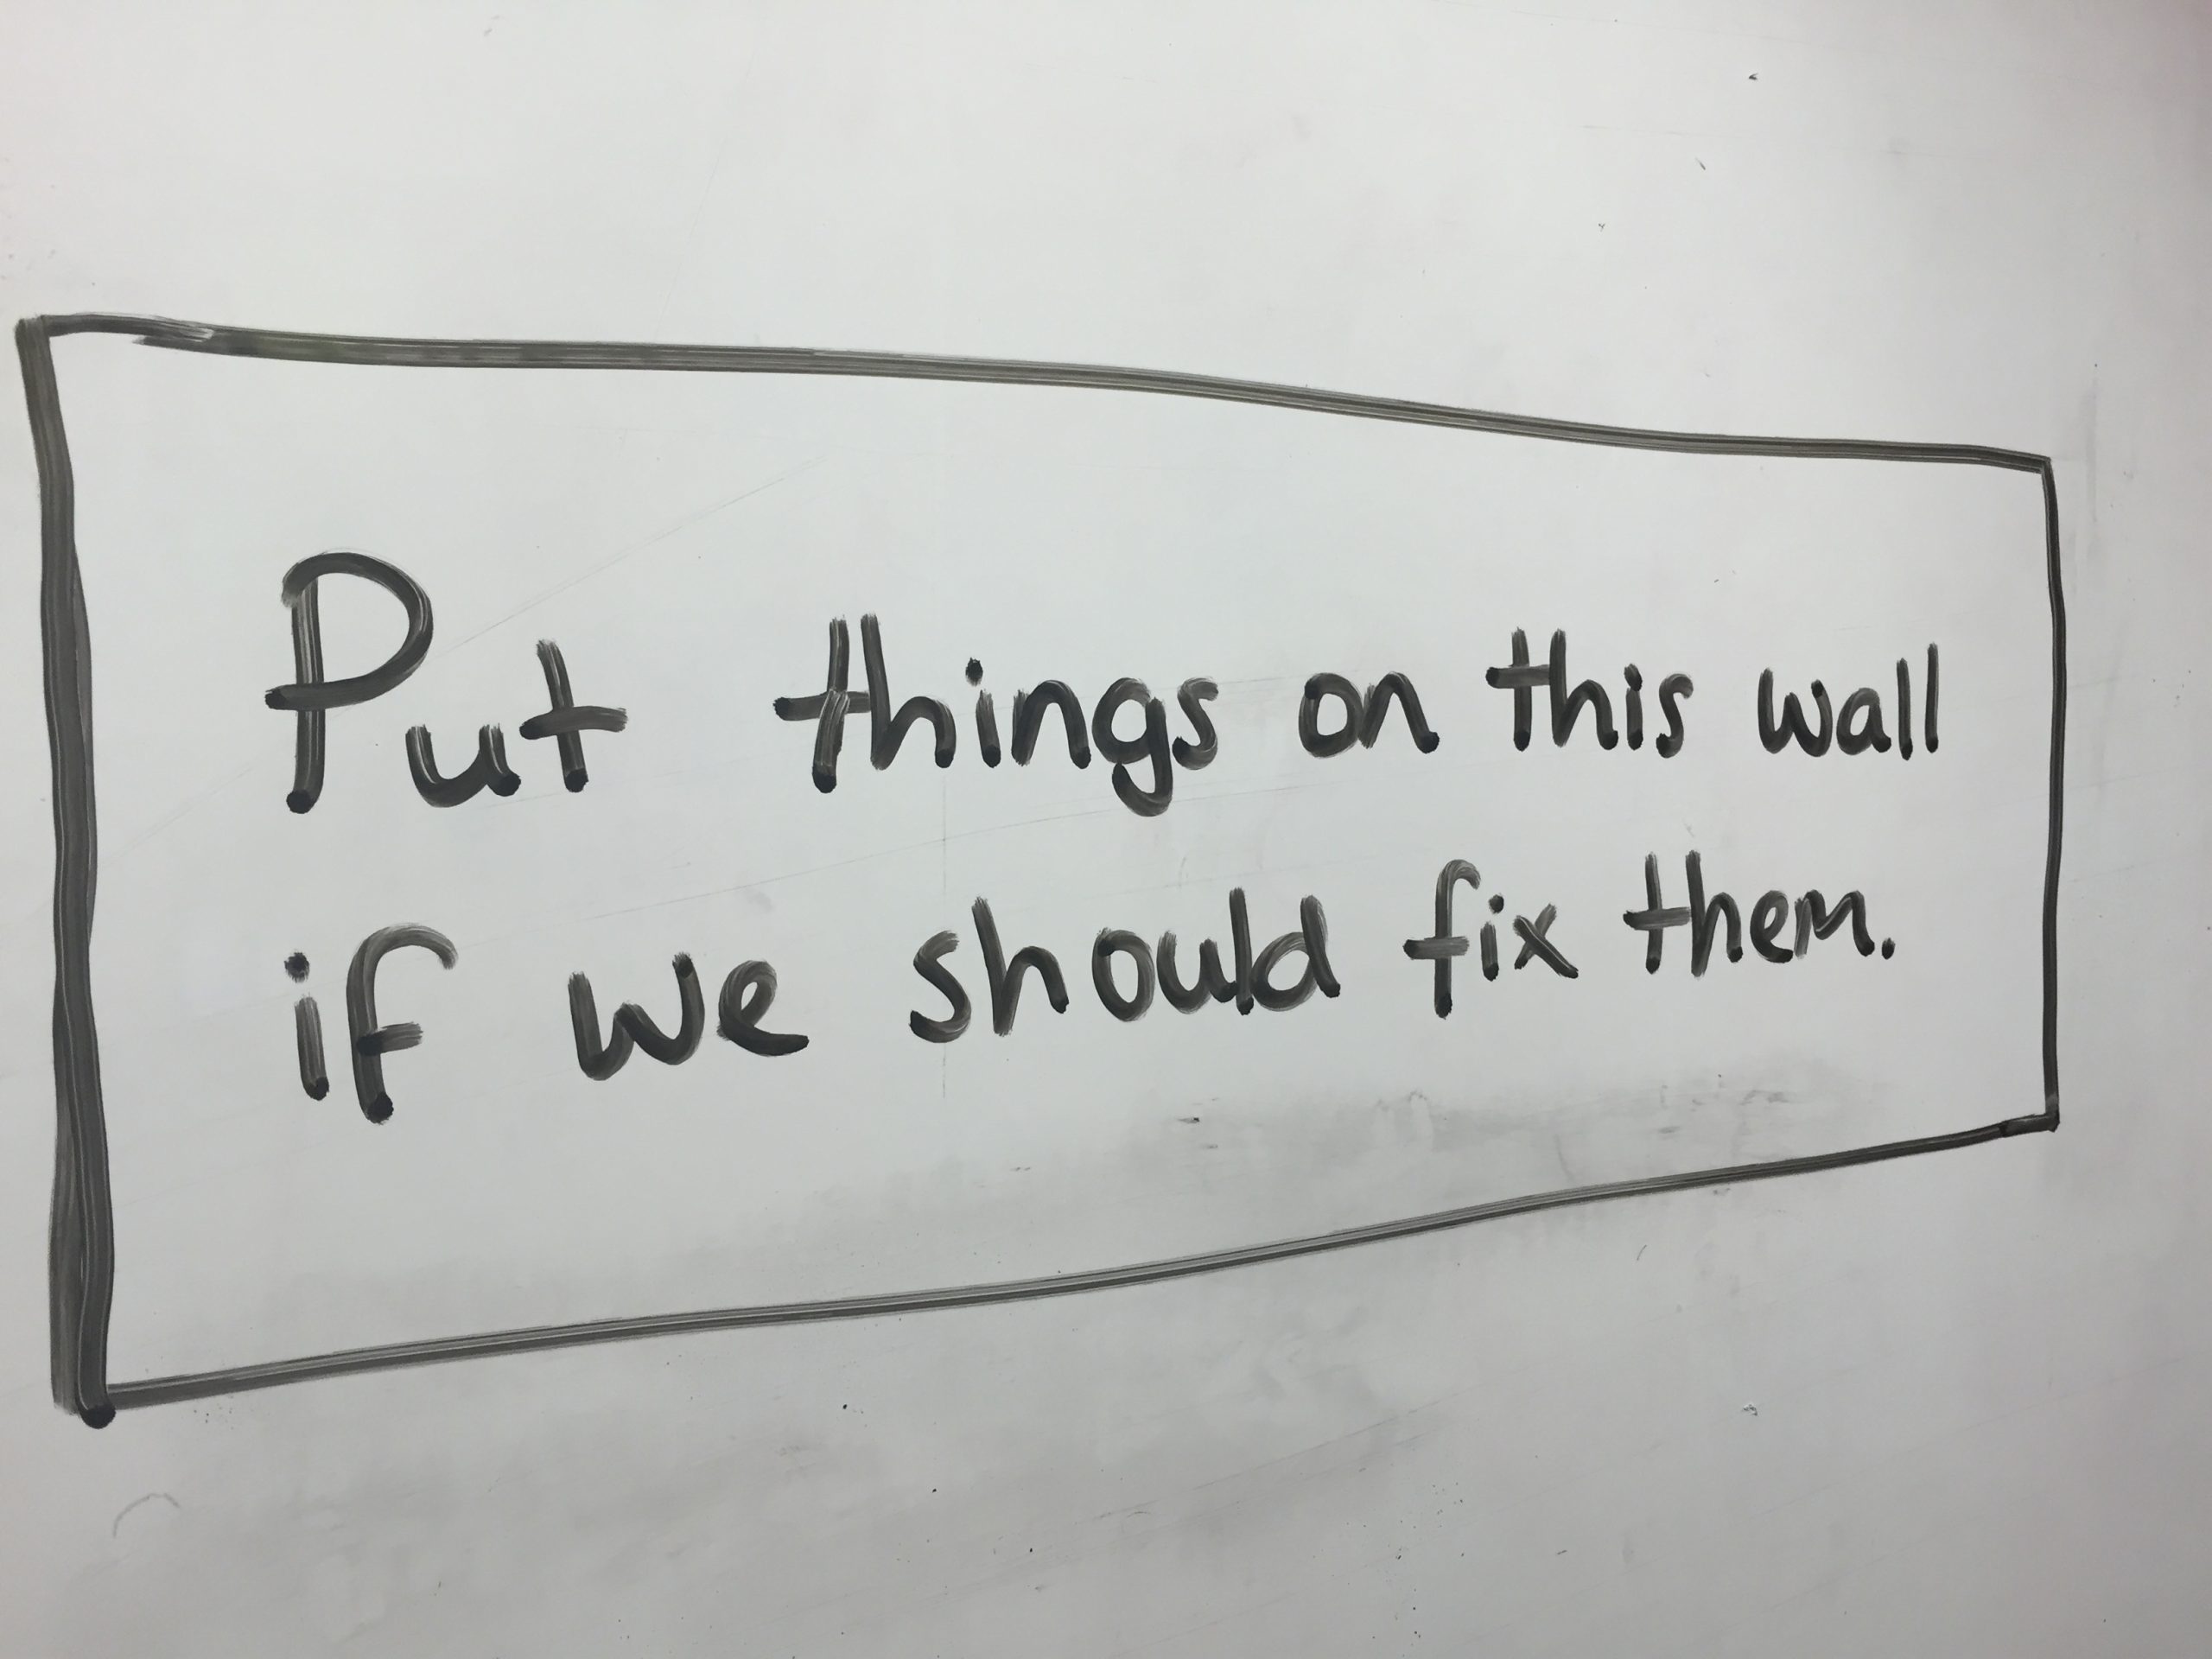 Put things on this wall
if we should fix them.